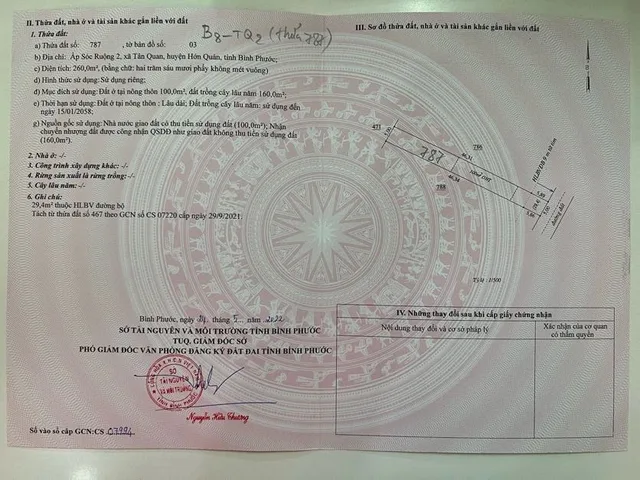 II. Thửa đất, nhà ở và tài sản khác gắn liền với đất
B8-TQ2 (thửa 787)
1. Thửa đất:
a) Thửa đất số: 787 , tờ bản đồ số: 03
b) Địa chỉ: Ấp Sóc Ruộng 2, xã Tân Quan, huyện Hớn Quản, tỉnh Bình Phước;
c) Diện tích: 260,0m², (bằng chữ: hai trăm sáu mươi phẩy không mét vuông)
d) Hình thức sử dụng: Sử dụng riêng;
đ) Mục đích sử dụng: Đất ở tại nông thôn 100,0m², đất trồng cây lâu năm 160,0m²;
e) Thời hạn sử dụng: Đất ở tại nông thôn : Lâu dài; Đất trồng cây lâu năm: Sử dụng đến
ngày 15/01/2058;
g) Nguồn gốc sử dụng: Nhà nước giao đất có thu tiền sử dụng đất (100,0m²); Nhận
chuyển nhượng đất được công nhận QSDĐ như giao đất không thu tiền sử dụng đất
(160,0m²).
2. Nhà ở: -/-
3. Công trình xây dựng khác: -/-
4. Rừng sản xuất là rừng trồng: -/-
5. Cây lâu năm: -/-
6. Ghi chú:
29,4m² thuộc HLBV đường bộ
Tách từ thửa đất số 467 theo GCN số CS 07220 cấp ngày 29/9/2021.
Bình Phước, ngày tháng năm 2022
SỞ TÀI NGUYÊN VÀ MÔI TRƯỜNG TỈNH BÌNH PHƯỚC
TUQ. GIÁM ĐỐC SỞ
PHÓ GIÁM ĐỐC VĂN PHÒNG ĐĂNG KÝ ĐẤT ĐAI TỈNH BÌNH PHƯỚC
SỞ
TÀI NGUYÊN
VÀ MÔI TRƯỜNG
TỈNH BÌNH PHƯỚC
Nguyễn Hữu Chương
Số vào sổ cấp GCN:CS 07994
III. Sơ đồ thửa đất, nhà ở và tài sản khác gắn liền với đất
471
5,00
786
787
46,31
46,34
788
HLBVĐB
đường đất
Tỷ lệ: 1/500
IV. Những thay đổi sau khi cấp giấy chứng nhận
Nội dung thay đổi và cơ sở pháp lý
Xác nhận của cơ quan
có thẩm quyền